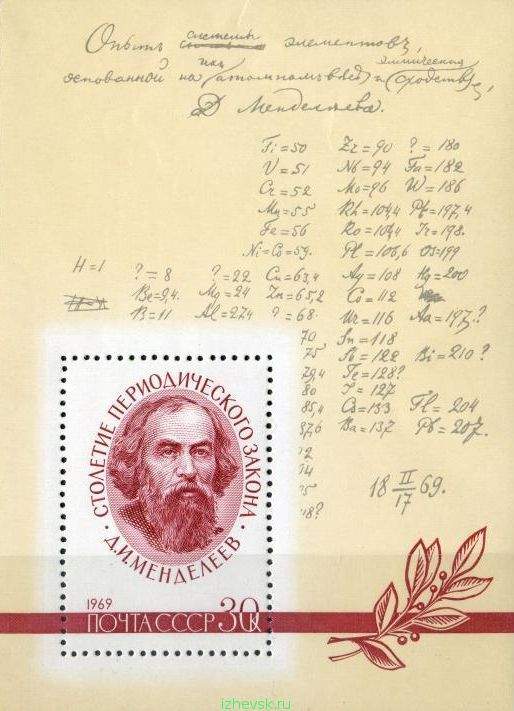 Опытъ системы элементовъ,
основанной на ихъ атомномъ вѣсѣ и химическомъ сходствѣ,
Д Менделѣева.
Ti=50 Zr=90 ?=180
V=51 Nb=94 Ta=182
Cr=52 Mo=96 W=186
Mn=55 Rh=104,4 Pt=197,4
Fe=56 Ro=104,4 Ir=198.
Ni=Co=59. Pl=106,6 Os=199
H=1 ?=8 ?=22 Cu=63,4 Ag=108 Hg=200
Be=9,4. Mg=24 Zn=65,2 Ca=112
B=11 Al=27,4 ?=68. Ur=116 Au=197?
70 Sn=118
75 Sb=122 Bi=210?
79,4 Te=128?
80 I=127
85,4 Cs=133 Tl=204
87,6 Ba=137 Pb=207.
18 II/17 69.
СТОЛЕТИЕ ПЕРИОДИЧЕСКОГО ЗАКОНА
· Д.И.МЕНДЕЛЕЕВ ·
1969
ПОЧТА СССР 30К
izhevsk.ru